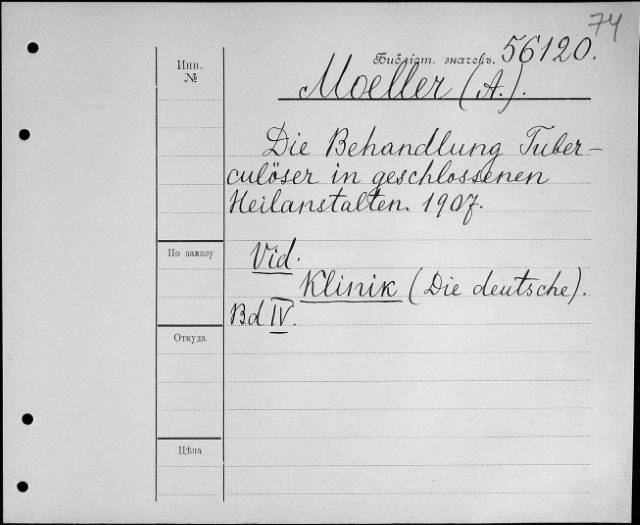 74
Инв.
№
Библіот. значекъ. 56120.
Moeller (A.).
Die Behandlung Tuber-
culöser in geschlossenen
Heilanstalten. 1907.
По заказу
Vid.
Klinik (Die deutsche).
Bd IV.
Откуда
Цѣна